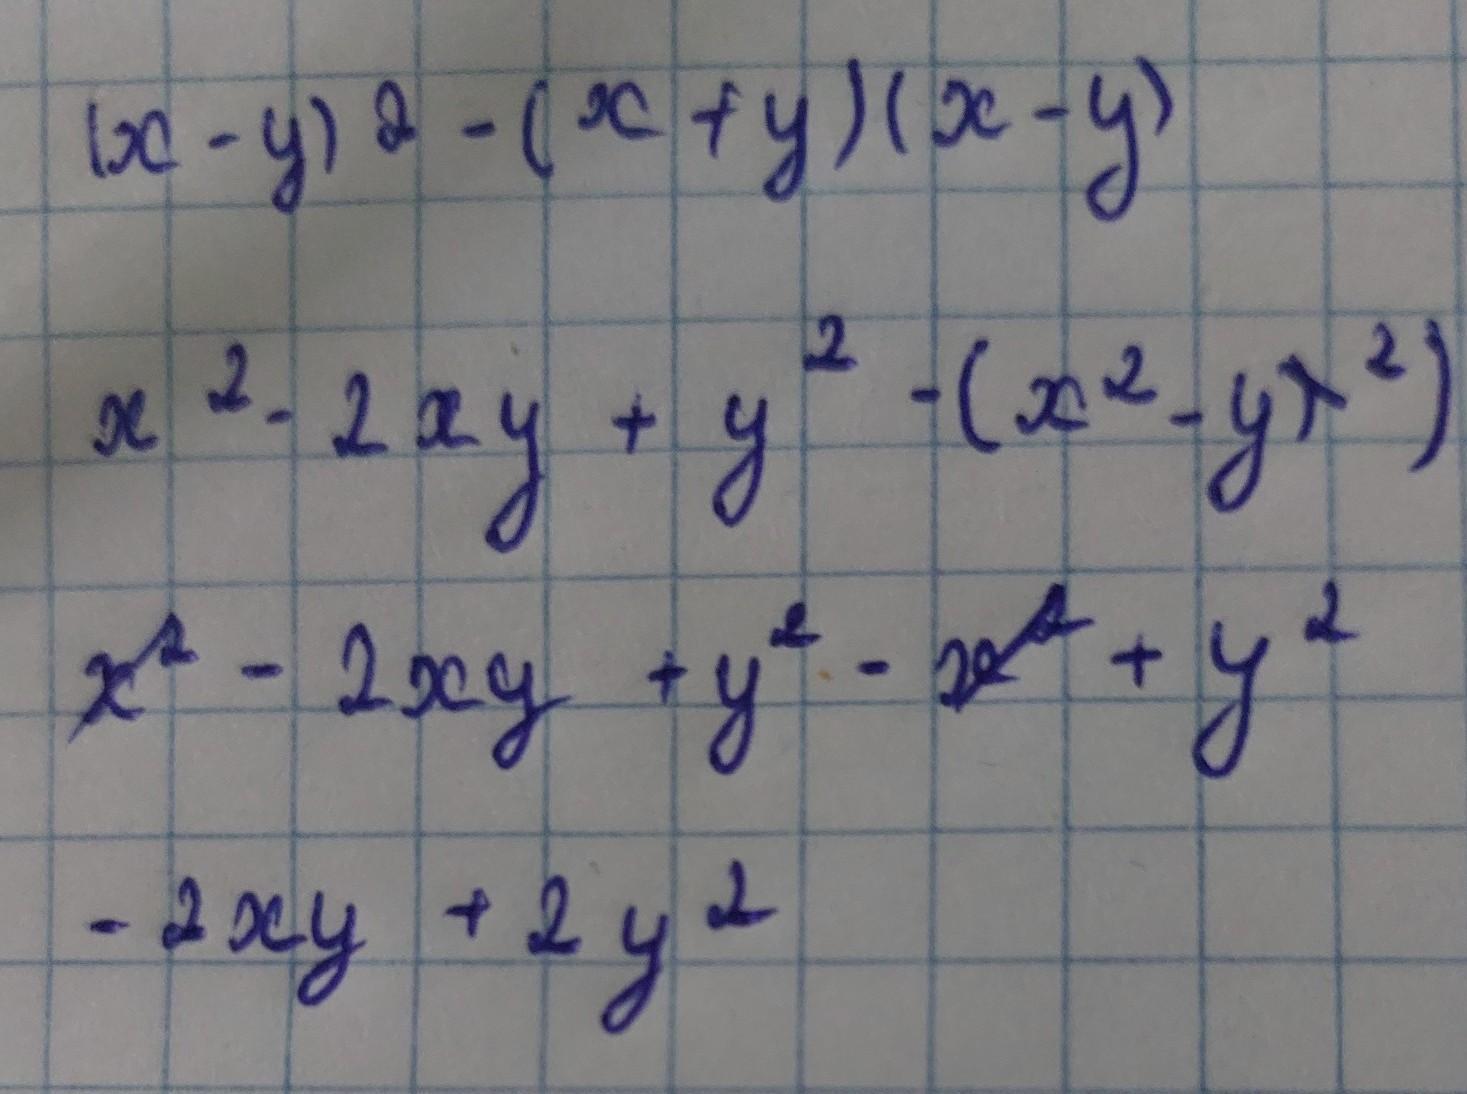 (x - y) 2 - (x + y) (x - y)
x² - 2xy + y² - (x² - y²)
x² - 2xy + y² - x² + y²
- 2xy + 2y²